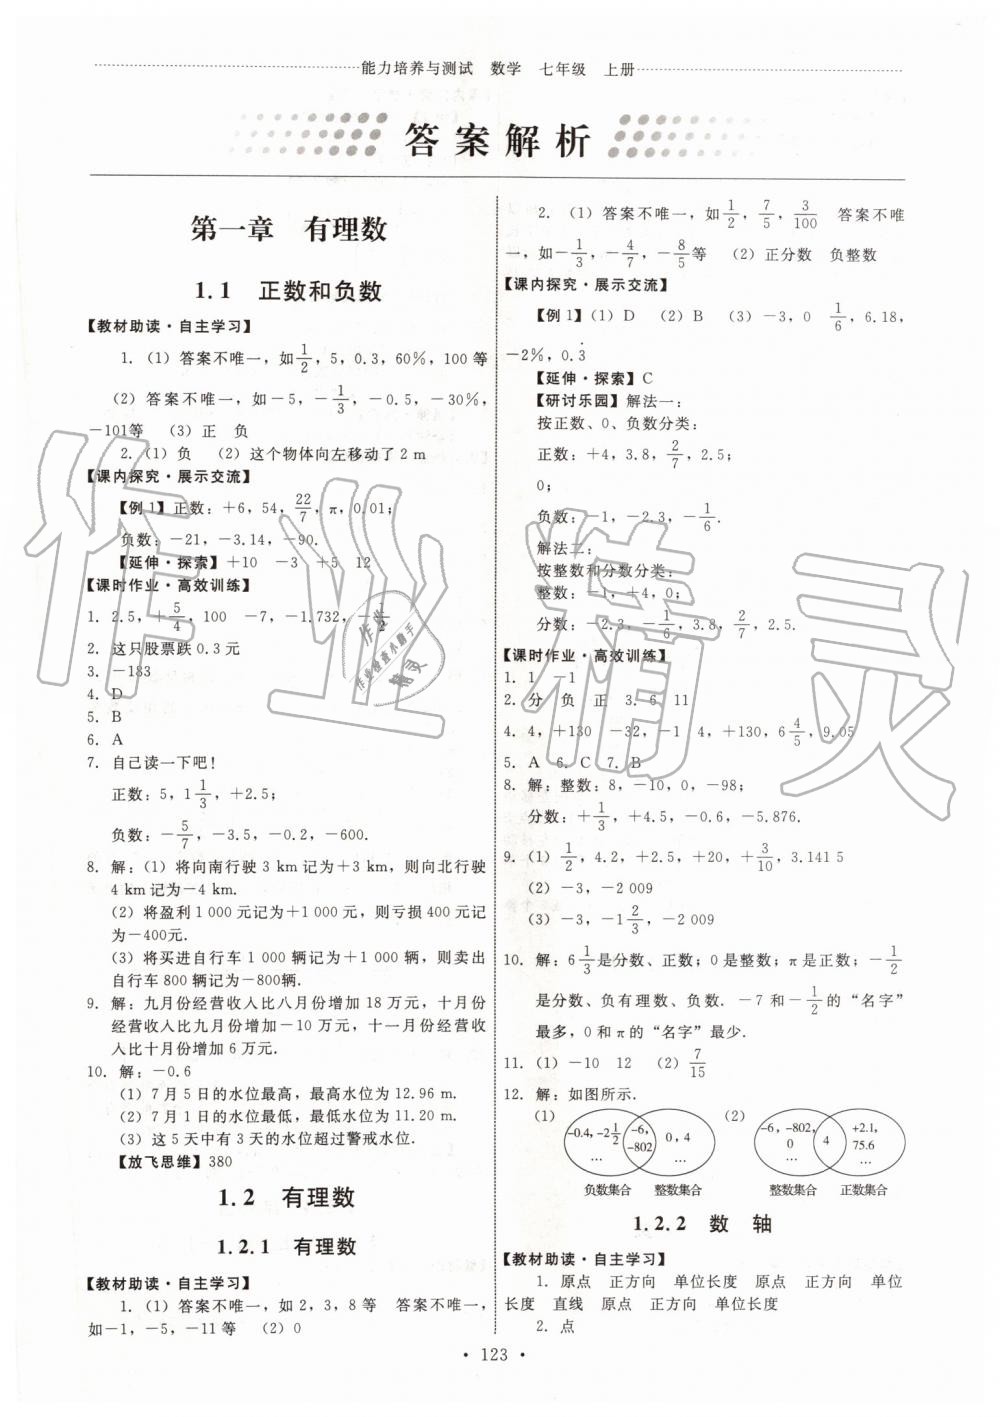 能力培养与测试 数学 七年级 上册
答案解析
第一章 有理数
1.1 正数和负数
【教材助读·自主学习】
1. (1) 答案不唯一，如1/2，5，0.3，60%，100 等
(2) 答案不唯一，如－5，－1/3，－0.5，－30%，
－101等 (3) 正 负
2. (1) 负 (2) 这个物体向左移动了 2 m
【课内探究·展示交流】
【例1】正数：＋6，54，22/7，π，0.01；
负数：－21，－3.14，－90.
【延伸·探索】＋10 －3 ＋5 12
【课时作业·高效训练】
1. 2.5，＋5/4，100 －7，－1.732，－1/2
2. 这只股票跌 0.3 元
3. －183
4. D
5. B
6. A
7. 自己读一下吧！
正数：5，1 1/3，＋2.5；
负数：－5/7，－3.5，－0.2，－600.
8. 解：(1) 将向南行驶 3 km 记为＋3 km，则向北行驶
4 km记为－4 km.
(2) 将盈利1 000元记为＋1 000 元，则亏损 400元记
为－400元.
(3) 将买进自行车 1 000 辆记为＋1 000 辆，则卖出
自行车 800 辆记为－800辆.
9. 解：九月份经营收入比八月份增加 18 万元，十月份
经营收入比九月份增加－10 万元，十一月份经营收
入比十月份增加 6 万元.
10. 解：－0.6
(1) 7 月 5 日的水位最高，最高水位为 12.96 m.
(2) 7 月 1 日的水位最低，最低水位为 11.20 m.
(3) 这 5 天中有 3 天的水位超过警戒水位.
【放飞思维】380
1.2 有理数
1.2.1 有理数
【教材助读·自主学习】
1. (1) 答案不唯一，如 2，3，8 等 答案不唯一，
如－1，－5，－11 等 (2) 0
2. (1) 答案不唯一，如1/2，7/5，3/100 答案不唯
一，如－1/3，－4/7，－8/5等 (2) 正分数 负整数
【课内探究·展示交流】
【例1】(1) D (2) B (3) －3，0 1/6，6.18，
－2%，0.3̇
【延伸·探索】C
【研讨乐园】解法一：
按正数、0、负数分类：
正数：＋4，3.8，2/7，2.5；
0；
负数：－1，－2.3，－1/6.
解法二：
按整数和分数分类：
整数：－1，＋4，0；
分数：－2.3，－1/6，3.8，2/7，2.5.
【课时作业·高效训练】
1. 1 －1
2. 分 负 正 3. 6 11
4. 4，＋130 －32，－1 4，＋130，6 4/5，9.05
5. A 6. C 7. B
8. 解：整数：8，－10，0，－98；
分数：＋1/3，＋4.5，－0.6，－5.876.
9. (1) 1/2，4.2，＋2.5，＋20，＋3/10，3.141 5
(2) －3，－2 009
(3) －3，－1 2/3，－2 009
10. 解：6 1/3是分数、正数；0 是整数；π是正数；－1/2
是分数、负有理数、负数. －7 和－1/2的“名字”
最多，0 和π的“名字”最少.
11. (1) －10 12 (2) 7/15
12. 解：如图所示.
(1) (2)
－0.4，－2 1/2 －6，－802 0，4 …  …
－6，－802，0 4 ＋2.1，75.6 … …
负数集合 整数集合 整数集合 正数集合
1.2.2 数 轴
【教材助读·自主学习】
1. 原点 正方向 单位长度 原点 正方向 单位
长度 直线 原点 正方向 单位长度
2. 点
· 123 ·
作业精灵
作业
作业检查小助手
精灵